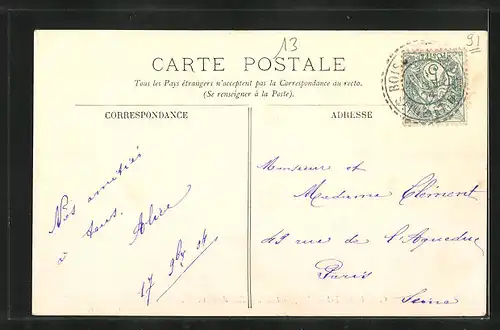 13
91
CARTE POSTALE
Tous les Pays étrangers n'acceptent pas la Correspondance au recto.
(Se renseigner à la Poste).
CORRESPONDANCE
ADRESSE
Nos amitiés
à tous.
17 9bre 04
Monsieur et
Madame Clément
49 rue de l'Aqueduc
Paris
Seine